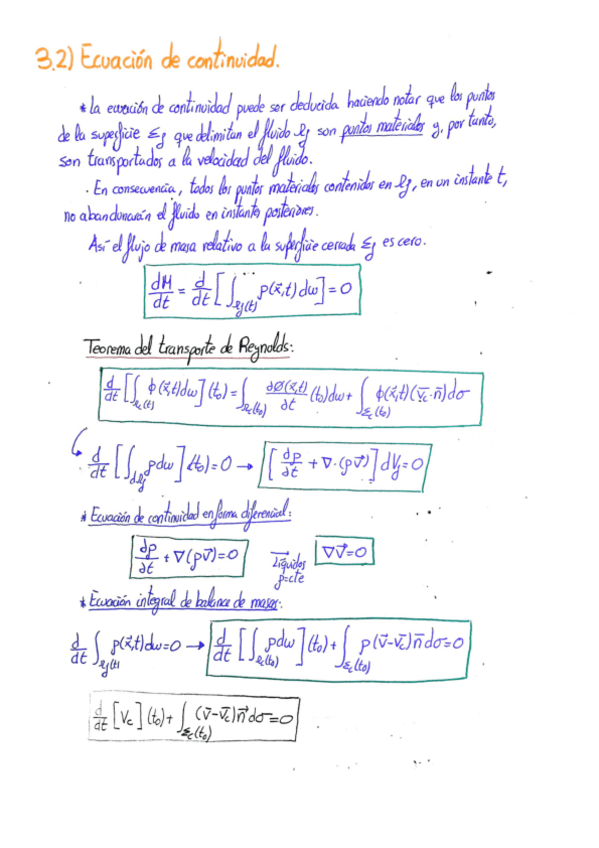 3.2) Ecuación de continuidad.
* La ecuación de continuidad puede ser deducida haciendo notar que los puntos
de la superficie Σf que delimitan el fluido Ωf son puntos materiales y, por tanto,
son transportados a la velocidad del fluido.
· En consecuencia, todos los puntos materiales contenidos en Ωf, en un instante t,
no abandonarán el fluido en instantes posteriores.
Así el flujo de masa relativo a la superficie cerrada Σf es cero.
dM/dt = d/dt [∫Ωf(t) ρ(x⃗,t) dω] = 0
Teorema del transporte de Reynolds:
d/dt [∫Ωc(t) ϕ(x⃗,t)dω](t₀) = ∫Ωc(t₀) ∂Ø(x⃗,t)/∂t (t₀)dω + ∫Σc(t₀) ϕ(x⃗,t)(v⃗c·n⃗)dσ
d/dt [∫ ρdω](t₀) = 0 → [∂ρ/∂t + ∇·(ρv⃗)] dVf = 0
* Ecuación de continuidad en forma diferencial:
∂ρ/∂t + ∇(ρv⃗) = 0 Líquidos ρ=cte ∇v⃗ = 0
* Ecuación integral de balance de masas:
d/dt ∫Ωf(t) ρ(x⃗,t)dω = 0 → d/dt [∫Ωc(t₀) ρdω](t₀) + ∫Σc(t₀) ρ(v⃗-v⃗c)n⃗dσ = 0
d/dt [Vc](t₀) + ∫Σc(t₀) (v⃗-v⃗c)n⃗dσ = 0